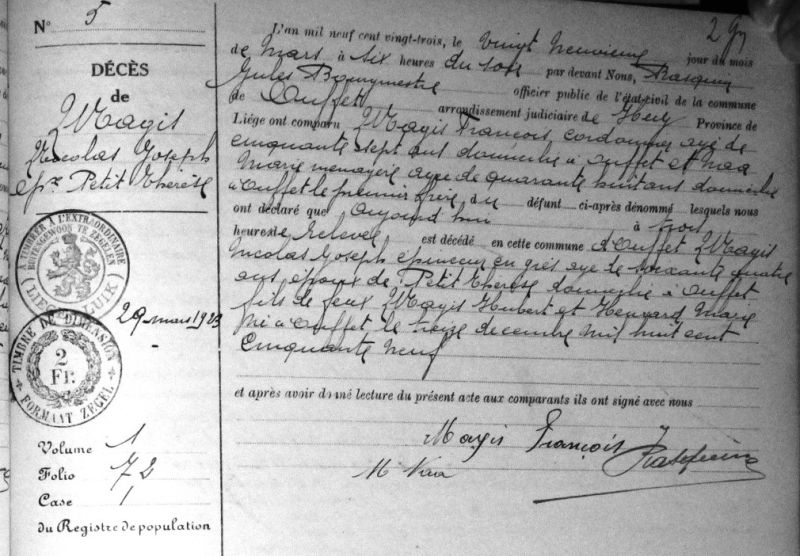 N° 5
DÉCÈS
de
Magis
Nicolas Joseph
epx Petit Thérèse
TIMBRE A L'EXTRAORDINAIRE
BUITENGEWOON TE ZEGELEN
LIEGE LUIK
29 mars 1923
TIMBRE DE DIMENSION
2
FR.
FORMAAT ZEGEL
Volume 1
Folio 72
Case 1
du Registre de population
L'an mil neuf cent vingt-trois, le vingt neuvieme jour du mois
de Mars à six heures du soir par devant Nous,
Jules Bourgmestre officier public de l'état-civil de la commune
de Ouffet arrondissement judiciaire de Huy Province de
Liége ont comparu Magis François, cordonnier age de
cinquante sept ans domicilie à Ouffet et
Marie menagere age de quarante huit ans domicilie
à Ouffet le premier frère du défunt ci-après dénommé lesquels nous
ont déclaré que aujourd'hui à trois
heures de relevee est décédé en cette commune à Ouffet Magis
Nicolas Joseph epinceur en grès age de soixante quatre
ans epoux de Petit Therese domicilie à Ouffet
fils de feux Magis Hubert et Henrard Marie
né à Ouffet le treize decembre mil huit cent
cinquante neuf
et après avoir donné lecture du présent acte aux comparants ils ont signé avec nous
Magis François
M